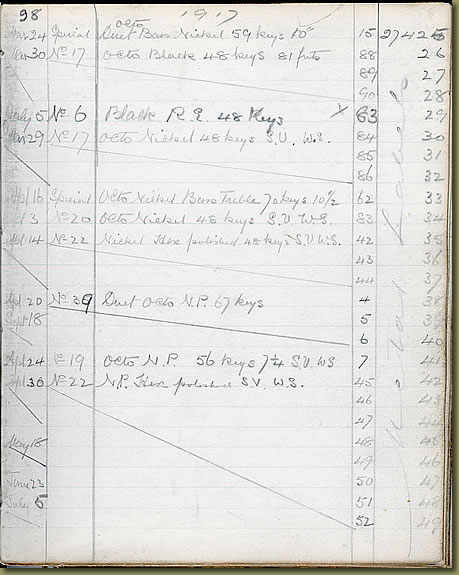 98 1917
Mar 24 Special Duet Octo Bass Nickel 59 keys 10" 15 27425
Mar 30 No 17 Octo Black 48 keys 81 futs 88 26
89 27
90 28
July 5 No 6 Black R.E. 48 Keys X 63 29
Mar 29 No 17 Octo Nickel 48 keys S.V. W.S. 84 30
85 31
86 32
Apl 16 Special Octo Nickel Bass Treble 70 keys 10 1/2 62 33
3 No 20 Octo Nickel 48 keys S.V. W.S. 83 34
Apl 14 No 22 Nickel Hex polished 48 keys S.V. W.S. 42 35
43 36
44 37
Apl 20 No 39 Duet Octo N.P. 67 keys 4 38
Sept 18 5 39
6 40
Apl 24 No 19 Octo N.P. 56 keys 7 1/4 S.V. WS 7 41
Apl 30 No 22 N.P. Hex polished S.V. W.S. 45 42
46 43
47 44
May 18 48 45
49 46
June 23 50 47
July 5 51 48
52 49